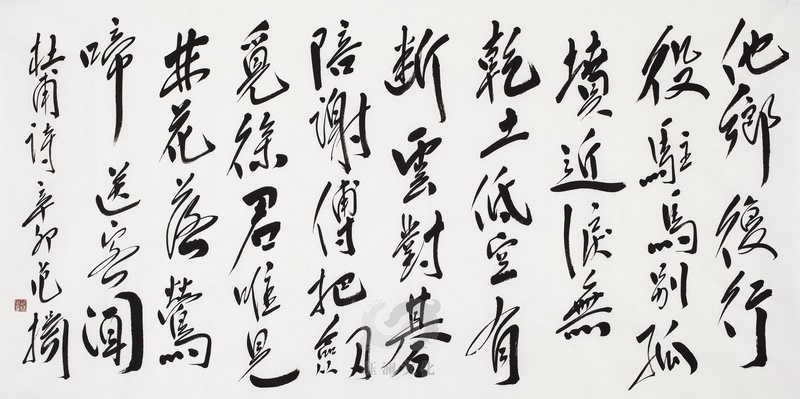 他鄉復行
役駐馬別孤
墳近淚無
乾土低空有
斷雲對碁
陪謝傅把劍
覓徐君唯見
林花落鶯
啼送客聞
杜甫詩 辛卯 范